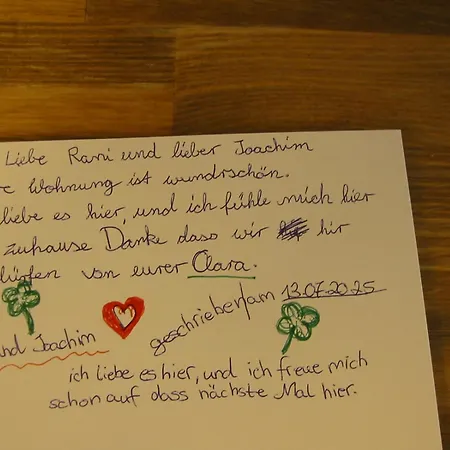 Liebe Rani und lieber Joachim
re Wohnung ist wundrschön.
liebe es hier, und ich fühle mich hier
zuhause Danke dass wir hir
dürfen von eurer Clara.
geschrieben am 13.07.2025
nd Joachim
ich liebe es hier, und ich freue mich
schon auf dass nächste Mal hier.